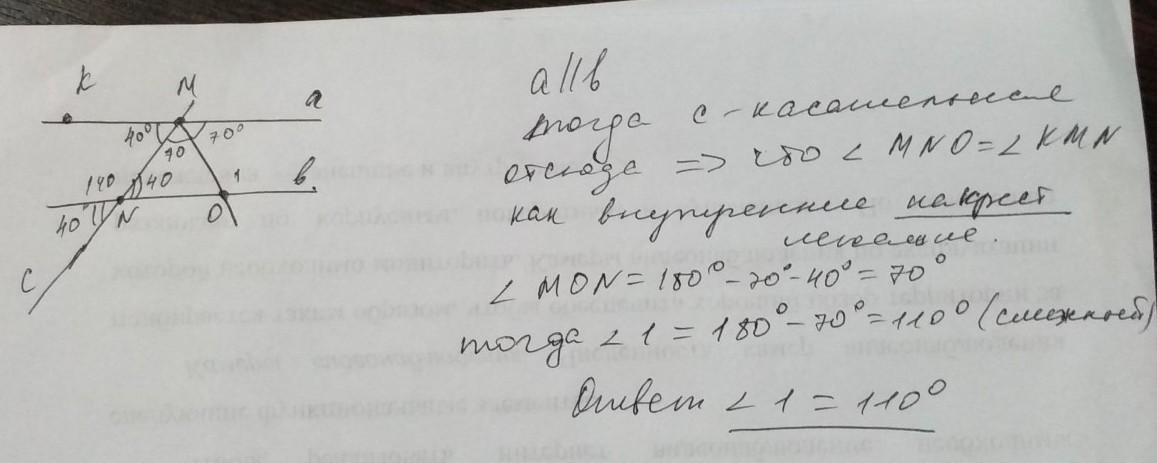 K M a
40° 70°
70
140 40 1 в.
40° N O
C
a || b
тогда c - касательная
отсюда => < MNO = < KMN
как внутренние накрест
лежащие.
< MON = 180° - 70° - 40° = 70°
тогда < 1 = 180° - 70° = 110° (смежность)
Ответ < 1 = 110°